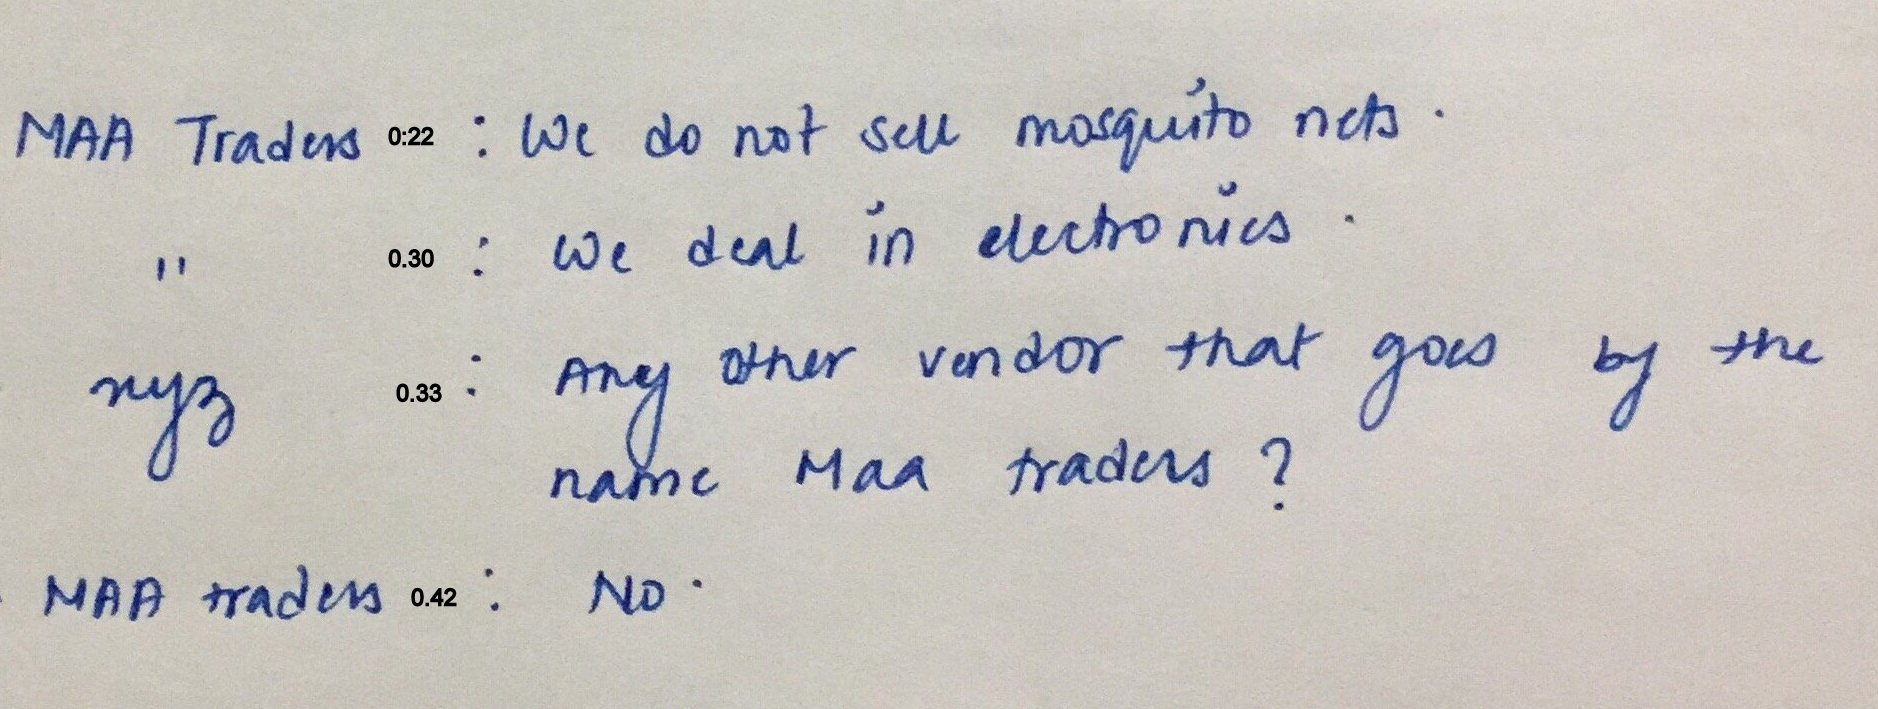 MAA Traders 0:22 : We do not sell mosquito nets.
" 0.30 : We deal in electronics.
xyz 0.33 : Any other vendor that goes by the
name Maa traders?
MAA traders 0.42 : No.